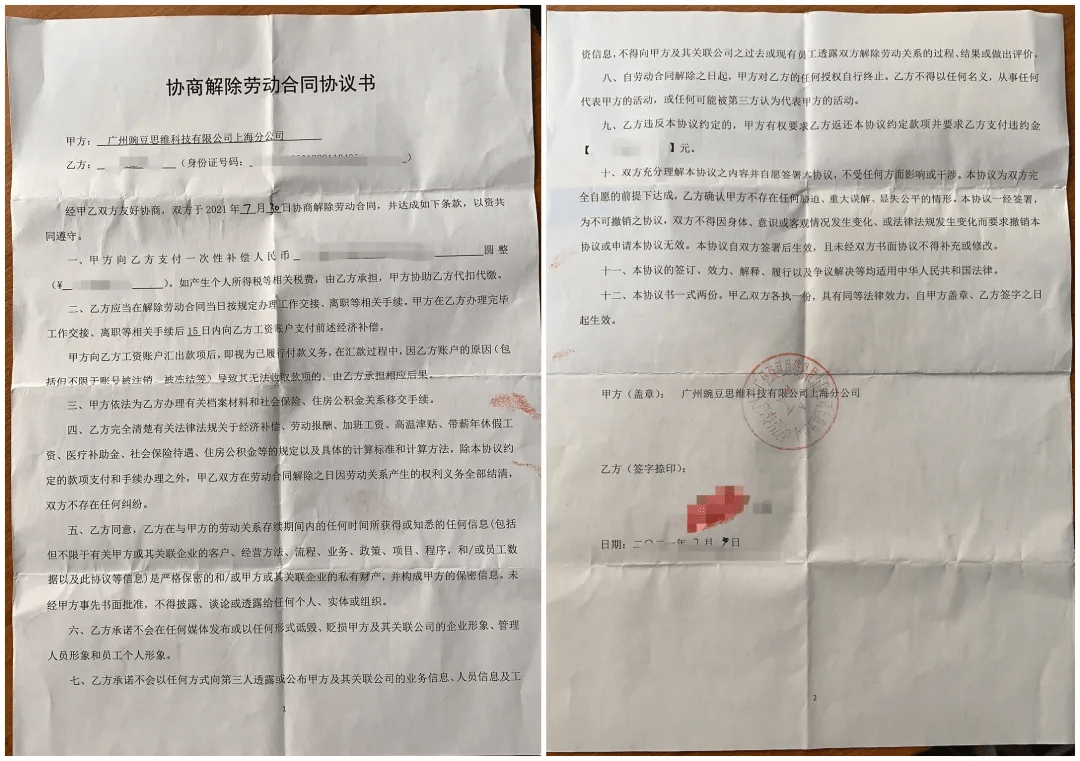 协商解除劳动合同协议书
甲方：广州豌豆思维科技有限公司上海分公司
乙方：（身份证号码：）
经甲乙双方友好协商，双方于2021年7月30日协商解除劳动合同，并达成如下条款，以资共
同遵守。
一、甲方向乙方支付一次性补偿人民币圆整
（¥）。如产生个人所得税等相关税费，由乙方承担，甲方协助乙方代扣代缴。
二、乙方应当在解除劳动合同当日按规定办理工作交接、离职等相关手续。甲方在乙方办理完毕
工作交接、离职等相关手续后15日内向乙方工资账户支付前述经济补偿。
甲方向乙方工资账户汇出款项后，即视为已履行付款义务，在汇款过程中，因乙方账户的原因（包
括但不限于账号被注销、被冻结等）导致其无法收取款项的，由乙方承担相应后果。
三、甲方依法为乙方办理有关档案材料和社会保险、住房公积金关系移交手续。
四、乙方完全清楚有关法律法规关于经济补偿、劳动报酬、加班工资、高温津贴、带薪年休假工
资、医疗补助金、社会保险待遇、住房公积金等的规定以及具体的计算标准和计算方法，除本协议约
定的款项支付和手续办理之外，甲乙双方在劳动合同解除之日因劳动关系产生的权利义务全部结清，
双方不存在任何纠纷。
五、乙方同意，乙方在与甲方的劳动关系存续期间内的任何时间所获得或知悉的任何信息(包括
但不限于有关甲方或其关联企业的客户、经营方法、流程、业务、政策、项目、程序，和/或员工数
据以及此协议等信息)是严格保密的和/或甲方或其关联企业的私有财产，并构成甲方的保密信息。未
经甲方事先书面批准，不得披露、谈论或透露给任何个人、实体或组织。
六、乙方承诺不会在任何媒体发布或以任何形式诋毁、贬损甲方及其关联公司的企业形象、管理
人员形象和员工个人形象。
七、乙方承诺不会以任何方式向第三人透露或公布甲方及其关联公司的业务信息、人员信息及工
1
资信息，不得向甲方及其关联公司之过去或现有员工透露双方解除劳动关系的过程、结果或做出评价。
八、自劳动合同解除之日起，甲方对乙方的任何授权自行终止。乙方不得以任何名义，从事任何
代表甲方的活动，或任何可能被第三方认为代表甲方的活动。
九、乙方违反本协议约定的，甲方有权要求乙方返还本协议约定款项并要求乙方支付违约金
【】元。
十、双方充分理解本协议之内容并自愿签署本协议，不受任何方面影响或干涉。本协议为双方完
全自愿的前提下达成，乙方确认甲方不存在任何胁迫、重大误解、显失公平的情形，本协议一经签署，
为不可撤销之协议，双方不得因身体、意识或客观情况发生变化、或法律法规发生变化而要求撤销本
协议或申请本协议无效。本协议自双方签署后生效，且未经双方书面协议不得补充或修改。
十一、本协议的签订、效力、解释、履行以及争议解决等均适用中华人民共和国法律。
十二、本协议书一式两份。甲乙双方各执一份，具有同等法律效力，自甲方盖章、乙方签字之日
起生效。
甲方（盖章）：广州豌豆思维科技有限公司上海分公司
乙方（签字捺印）：
日期：二〇二一年7月日
2